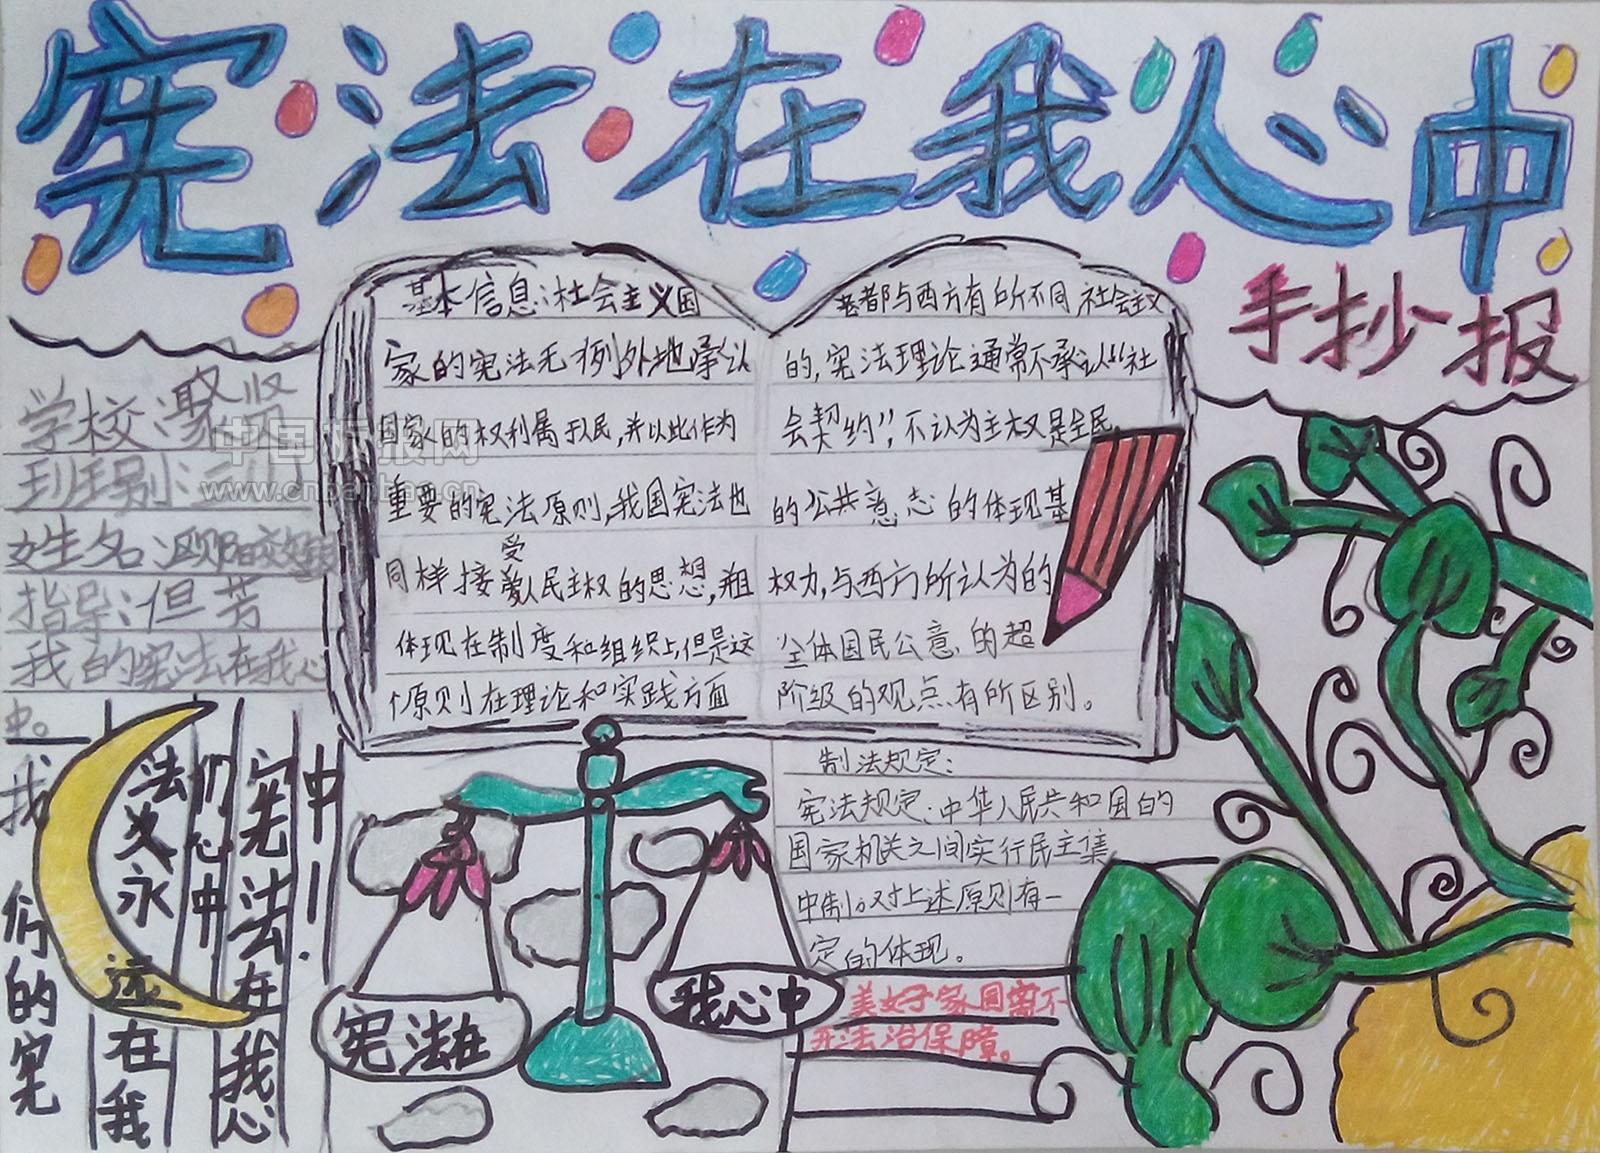 宪法在我心中
手抄报
基本信息:社会主义国
家的宪法无例外地承认
国家的权利属于人民,并以此作为
重要的宪法原则,我国宪法也
同样接受人民主权的思想,粗
体现在制度和组织上,但是这
个原则在理论和实践方面
老都与西方有的所不同 社会主义
的,宪法理论通常不承认“社
会契约”,不认为主权是全民
的公共意志的体现基
权力,与西方所认为的
全体国民公意、的超
阶级的观点有所区别。
学校:聚
班别:
姓名:欧阳
指导:但芳
我的宪法在我心
中。
我们的宪
法永远在我
们心中
宪法在我心
中!
中国板报网
www.cnbanbao.cn
宪法在
我心中
制法规定:
宪法规定:中华人民共和国的
国家机关之间实行民主集
中制。对上述原则有一
定的体现。
美好家园离不
开法治保障。